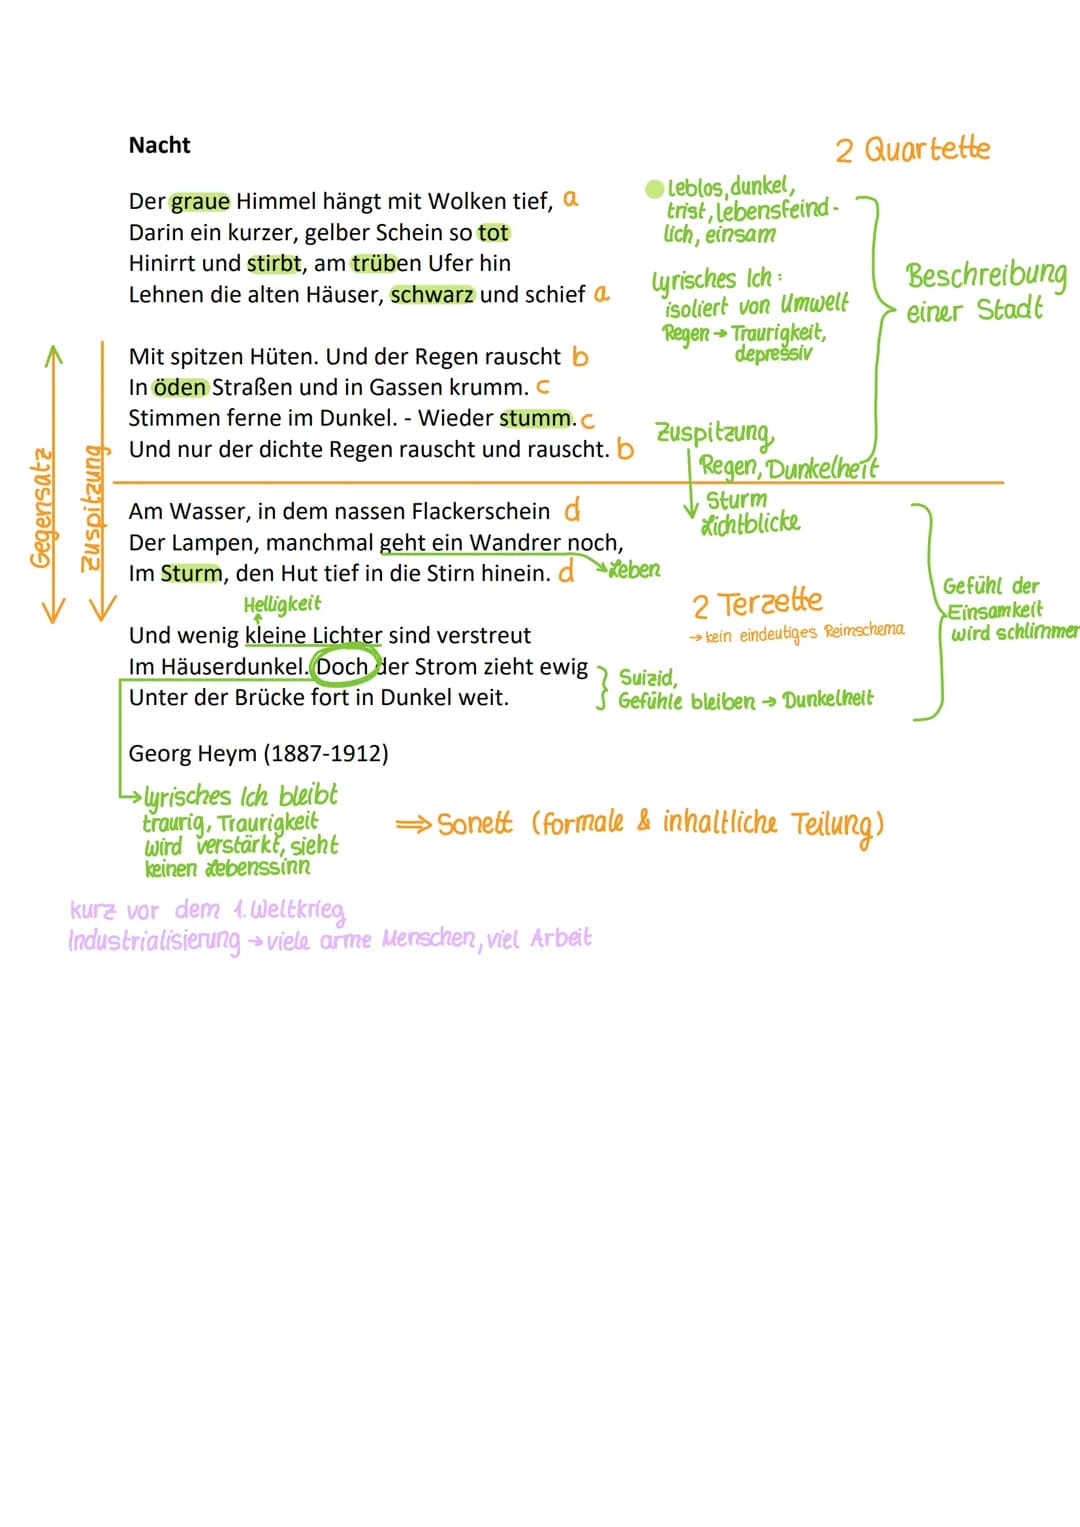 Nacht
2 Quartette
Der graue Himmel hängt mit Wolken tief, a
Darin ein kurzer, gelber Schein so tot
Hinirrt und stirbt, am trüben Ufer hin
Lehnen die alten Häuser, schwarz und schief a
leblos, dunkel,
trist, lebensfeind-
lich, einsam
lyrisches Ich:
isoliert von Umwelt
Regen → Traurigkeit,
depressiv
Beschreibung
einer Stadt
Mit spitzen Hüten. Und der Regen rauscht b
In öden Straßen und in Gassen krumm. c
Stimmen ferne im Dunkel. - Wieder stumm. c
Und nur der dichte Regen rauscht und rauscht. b
Zuspitzung
Regen, Dunkelheit
Sturm
Lichtblicke
Gegensatz
Zuspitzung
Am Wasser, in dem nassen Flackerschein d
Der Lampen, manchmal geht ein Wandrer noch,
Im Sturm, den Hut tief in die Stirn hinein. d
Leben
Helligkeit
2 Terzette
→ kein eindeutiges Reimschema
Gefühl der
Einsamkeit
wird schlimmer
Und wenig kleine Lichter sind verstreut
Im Häuserdunkel. Doch der Strom zieht ewig
Unter der Brücke fort in Dunkel weit.
Suizid,
Gefühle bleiben → Dunkelheit
Georg Heym (1887-1912)
lyrisches Ich bleibt
traurig, Traurigkeit
wird verstärkt, sieht
keinen Lebenssinn
⇒ Sonett (formale & inhaltliche Teilung)
kurz vor dem 1. Weltkrieg
Industrialisierung → viele arme Menschen, viel Arbeit